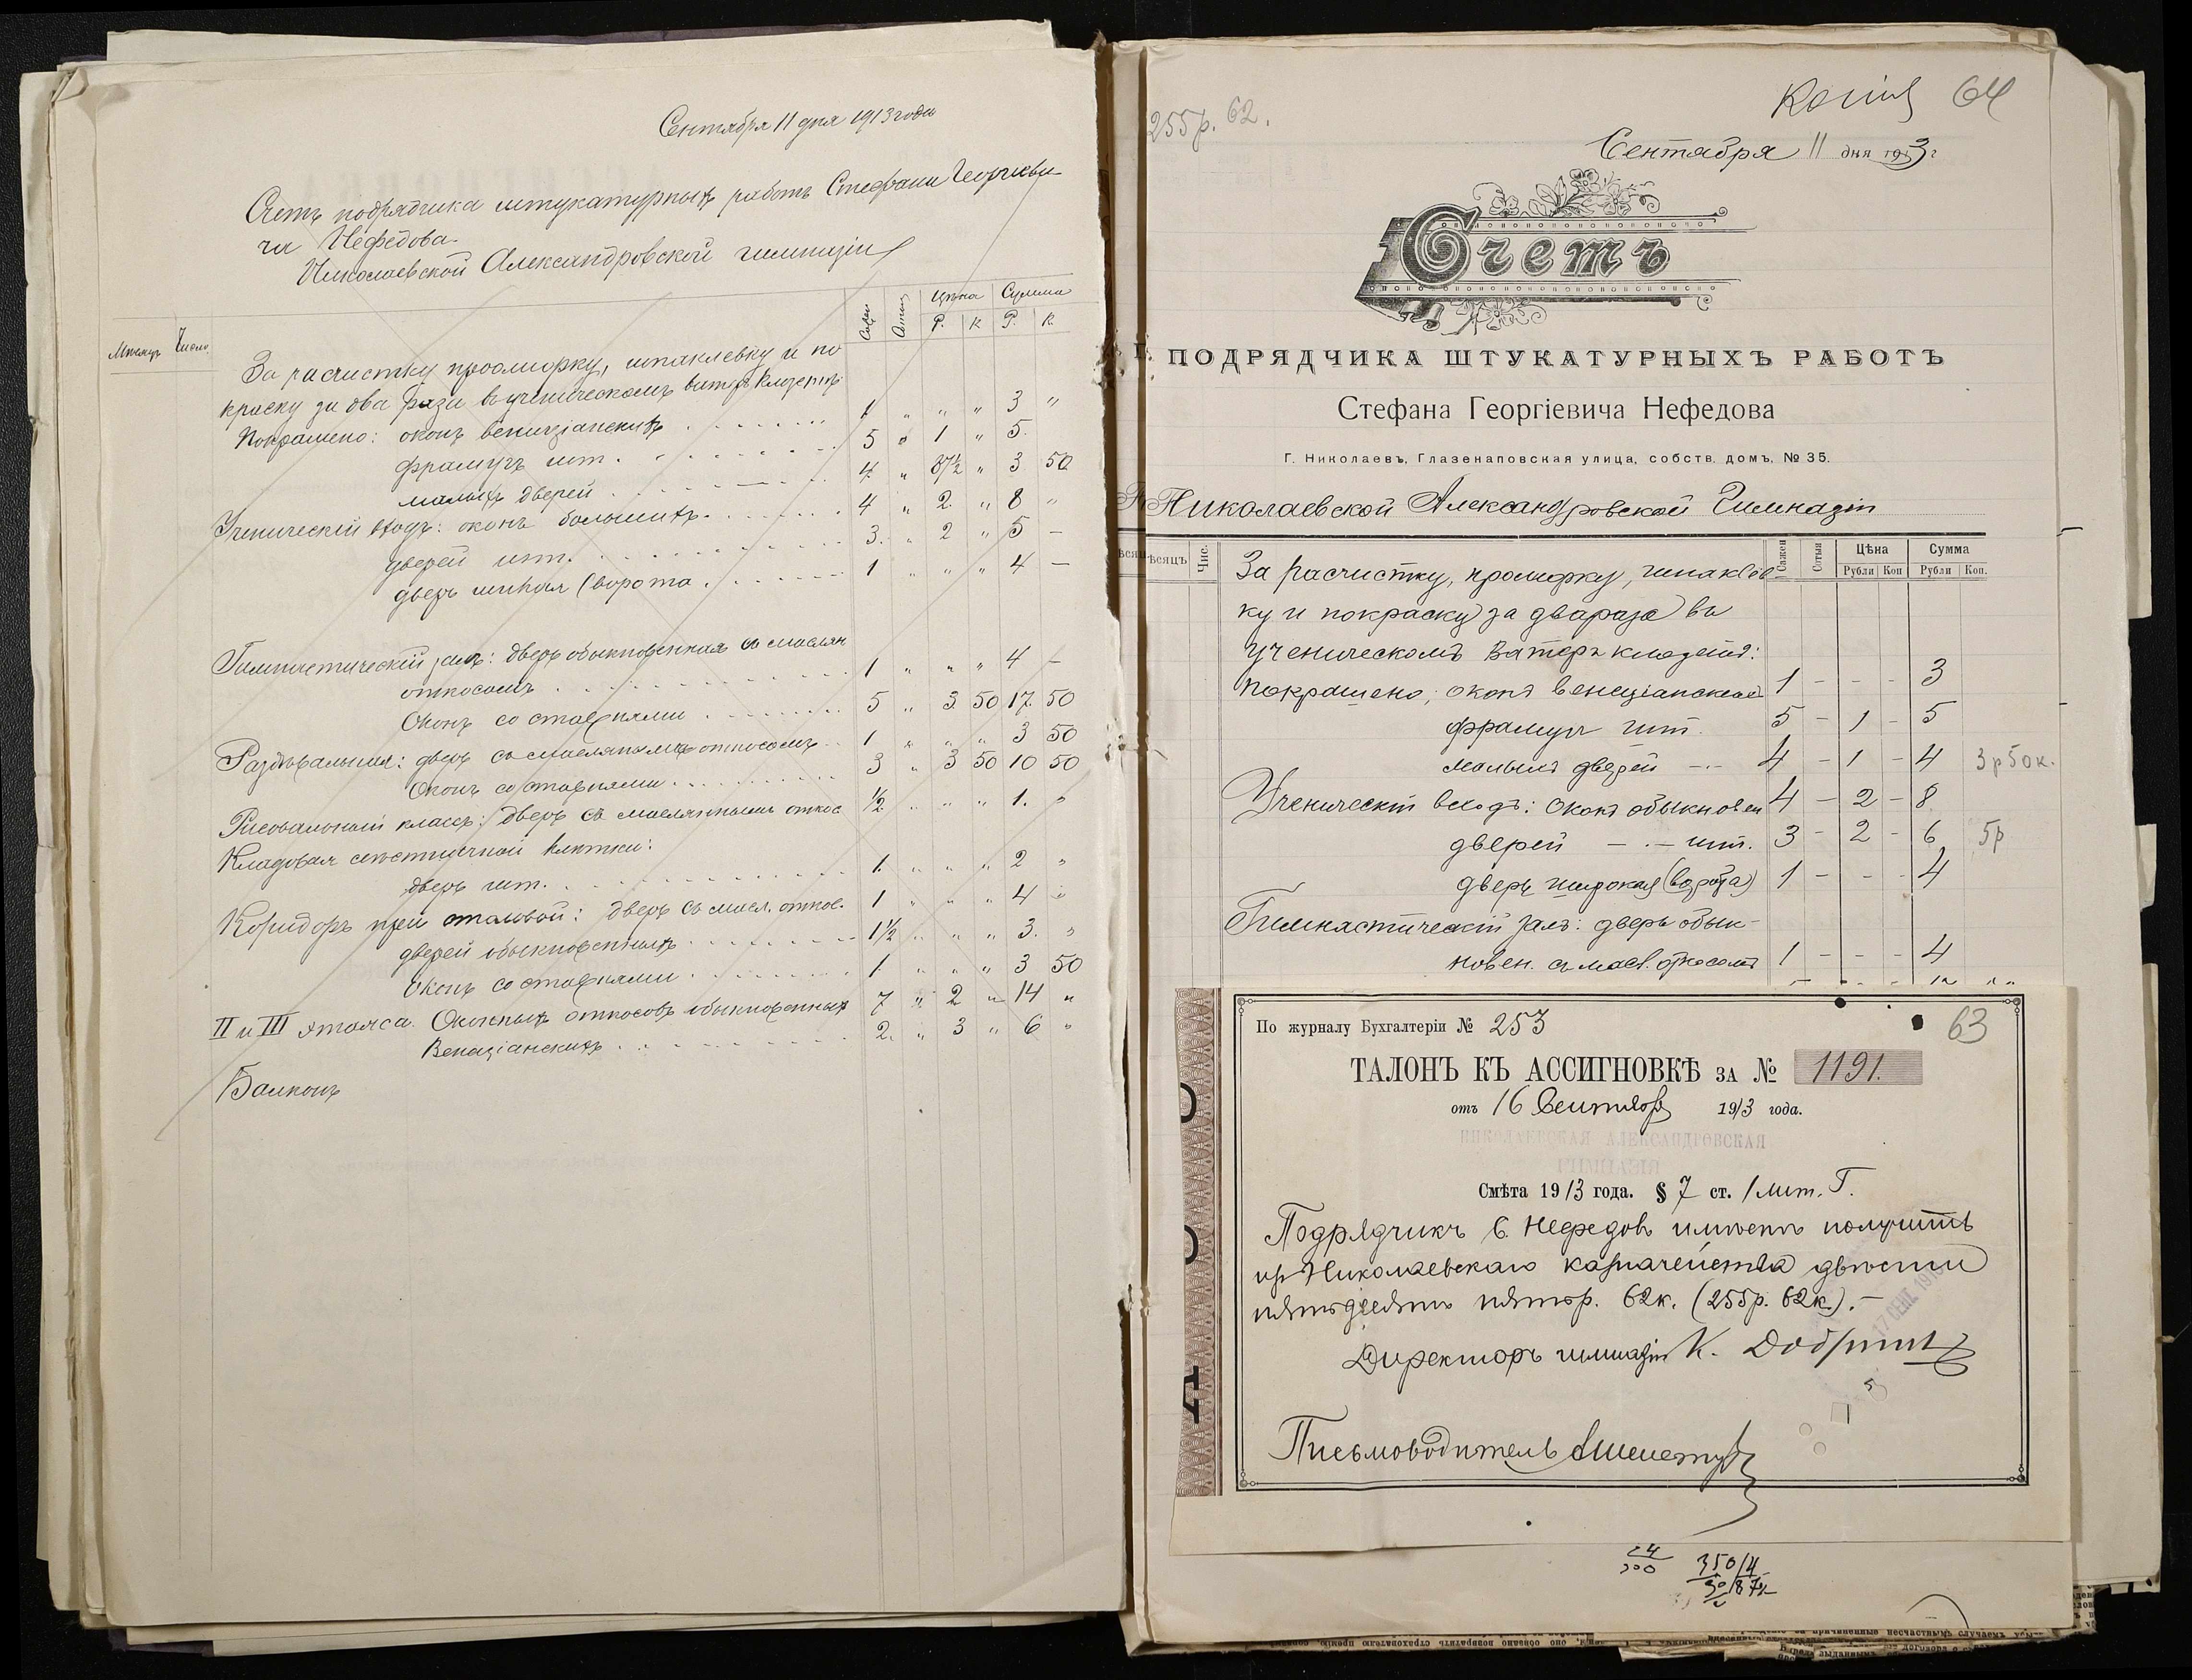 Сентября 11 дня 1913 года
Счетъ подрядчика штукатурныхъ работъ Стефана Георгіеви-
ча Нефедова
Николаевской Александровской гимназіи
Мѣсяцъ Число Цѣна Сумма
Р. К Р. К.
За расчистку проолифку, шпаклевку и по
краску за два раза въ ученическомъ ватеръ клозетѣ
Покрашено: оконъ венеціанскихъ 1 „ „ „ 3 „
фрамугъ шт. 5 „ 1 „ 5.
малыхъ дверей 4 „ 87½ „ 3 50
Ученическій входъ: оконъ большихъ 4 „ 2 „ 8 „
дверей шт. 3. „ 2 „ 5 –
дверь (ворота 1 „ „ „ 4 –
Гимнастическій залъ: дверь обыкновенная съ маслян
откосомъ 1 „ „ „ 4 –
Оконъ со ставнями 5 „ 3 50 17 50
Раздѣвальная: дверь съ маслянымъ откосомъ 1 „ „ „ 3 50
Оконъ со ставнями 3 „ 3 50 10 50
Рисовальный классъ: дверь съ маслянымъ откос ½ „ „ „ 1. „
Кладовая лѣстничной клѣтки:
дверь шт. 1. „ „ „ 2 „
Коридоръ при столовой: дверь съ масл. откос. 1 „ „ „ 4 „
дверей обыкновенныхъ 1½ „ „ „ 3. „
Оконъ со ставнями 1. „ „ „ 3 50
II и III этажа. Оконныхъ откосовъ обыкновенныхъ 7 „ 2 „ 14 „
Венеціанскихъ 2. „ 3 „ 6 „
Балконъ
Копія 64
255р. 62.
Сентября 11 дня 1913 г
Счетъ
ПОДРЯДЧИКА ШТУКАТУРНЫХЪ РАБОТЪ
Стефана Георгіевича Нефедова
Г. Николаевъ, Глазенаповская улица, собств. домъ, № 35.
Николаевской Александровской Гимназіи
ѣсяцъ Чис. Сажен Сотыя Цѣна Сумма
Рубли Коп Рубли Коп.
За расчистку, проолифку, шпаклев-
ку и покраску за два раза въ
ученическомъ Ватеръ клозетѣ:
покрашено; оконъ венеціанской 1 – – – 3
фрамугъ шт. 5 – 1 – 5
малыхъ дверей 4 – 1 – 4 3р 50к.
Ученическій входъ: Оконъ обыкновен 4 – 2 – 8
дверей – . – шт. 3 – 2 – 6 5р
дверь широкая (ворота) 1 – – – 4
Гимнастическій залъ: дверь обык-
новен. съ масл. откосомъ 1 – – – 4
По журналу Бухгалтеріи № 253 63
ТАЛОНЪ КЪ АССИГНОВКѢ ЗА № 1191.
отъ 16 Сентября 1913 года.
НИКОЛАЕВСКАЯ АЛЕКСАНДРОВСКАЯ
ГИМНАЗІЯ
Смѣта 1913 года. § 7 ст. 1 лит. Г.
Подрядчикъ С. Нефедовъ имѣетъ получить
изъ Николаевскаго казначейства двѣсти
пятьдесятъ пять р. 62к. (255р. 62к.). –
17 СЕН. 191
Директоръ гимназіи К.
Письмоводитель
24
300
350/4
30/87½